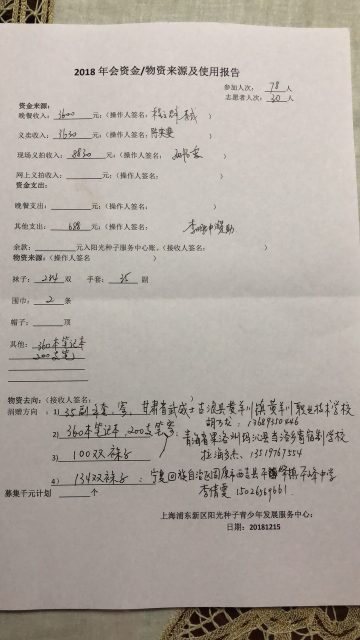 2018 年会资金/物资来源及使用报告
参加人次: 78 人
志愿者人次: 30 人
资金来源:
晚餐收入: 3600 元;(操作人签名:
义卖收入: 3630 元;(操作人签名: )
现场义拍收入: 8830 元;(操作人签名: )
网上义拍收入: 元;(操作人签名: )
资金支出:
晚餐支出: 元;(操作人签名: )
其他支出: 688 元;(操作人签名:
余款: 元入阳光种子服务中心账。(接收人签名: )
物资来源:(操作人签名 )
袜子: 234 双 手套: 35 副
围巾: 2 条
帽子: 顶
其他: 360本笔记本
200支笔
物资去向:(接收人签名: )
捐赠方向: 1) 35副手套, 寄, 甘肃省武威士古浪县黄羊川镇黄羊川职业技术学校
13689350446
2) 360本笔记本, 200支笔 寄: 青海省果洛州玛沁县当洛乡寄宿制学校
3) 100双袜子 13519767554
4) 134双袜子 : 宁夏回族自治区固原市西吉县平峰镇平峰中学
李倩雯 15026569661
募集千元计划 个
上海浦东新区阳光种子青少年发展服务中心:
日期: 20181215